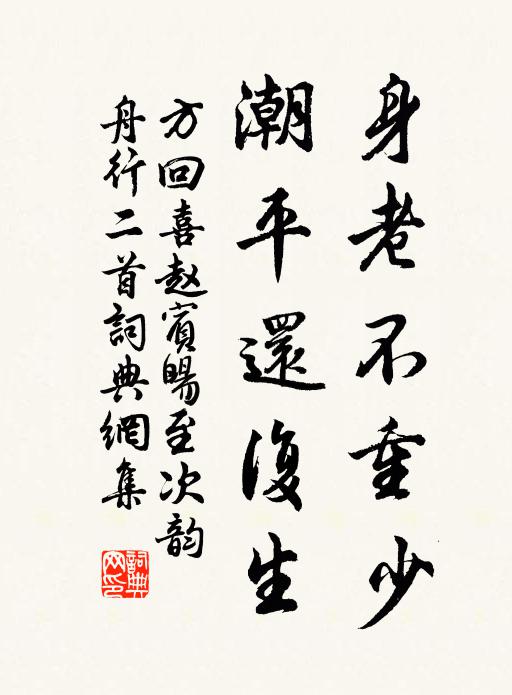 身老不重少
潮平還復生
方回喜赵賓暘至次韵
舟行二首詞典網集
詞典網印